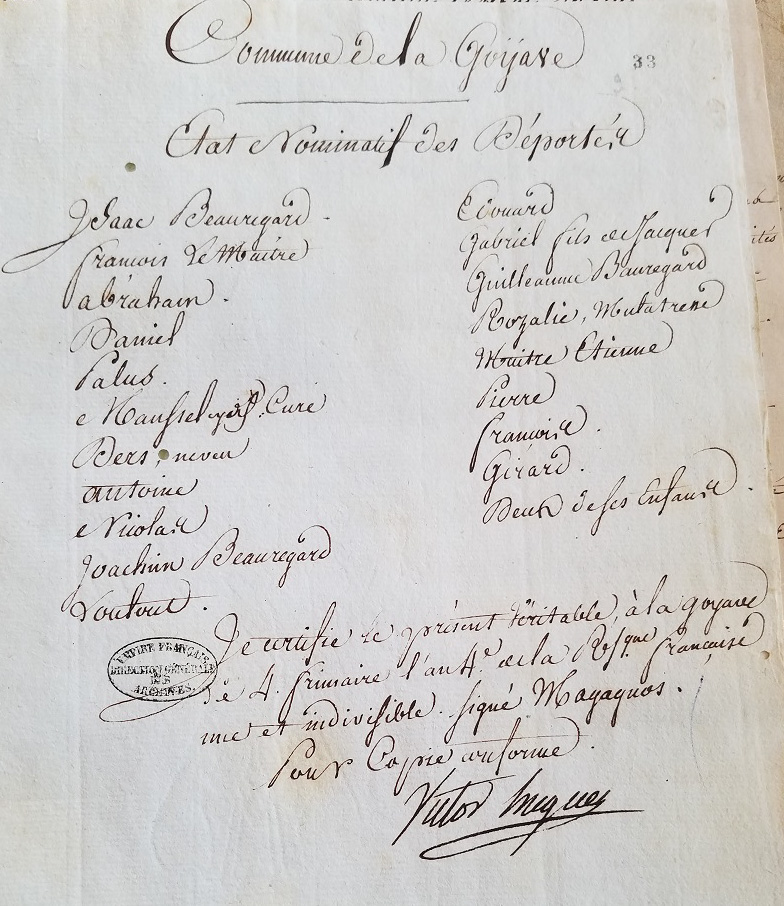 Commune de la Goÿave
33
Etat Nominatif des Déportés
Isaac Beauregard
francois Le Maitre
abraham.
Daniel
Palus.
Curé
Ders, neveu
antoine
Nicolas
Joachim Beauregard
Loulout.
Edouard
Gabriel fils de Jacques
Guilleaume Bauregard
Rozalie, Mulatresse
Maitre Etienne
Pierre
francois.
Girard.
Deux de ses Enfants.
Je certifie le présent Véritable, à la goyave
le 4. frimaire l'an 4e. de la Repque francaise
une et indivisible. signé Magagnos.
Pour Copie conforme.
Victor Hugues
EMPIRE FRANÇAIS
DIRECTION GÉNÉRALE
DES
ARCHIVES.